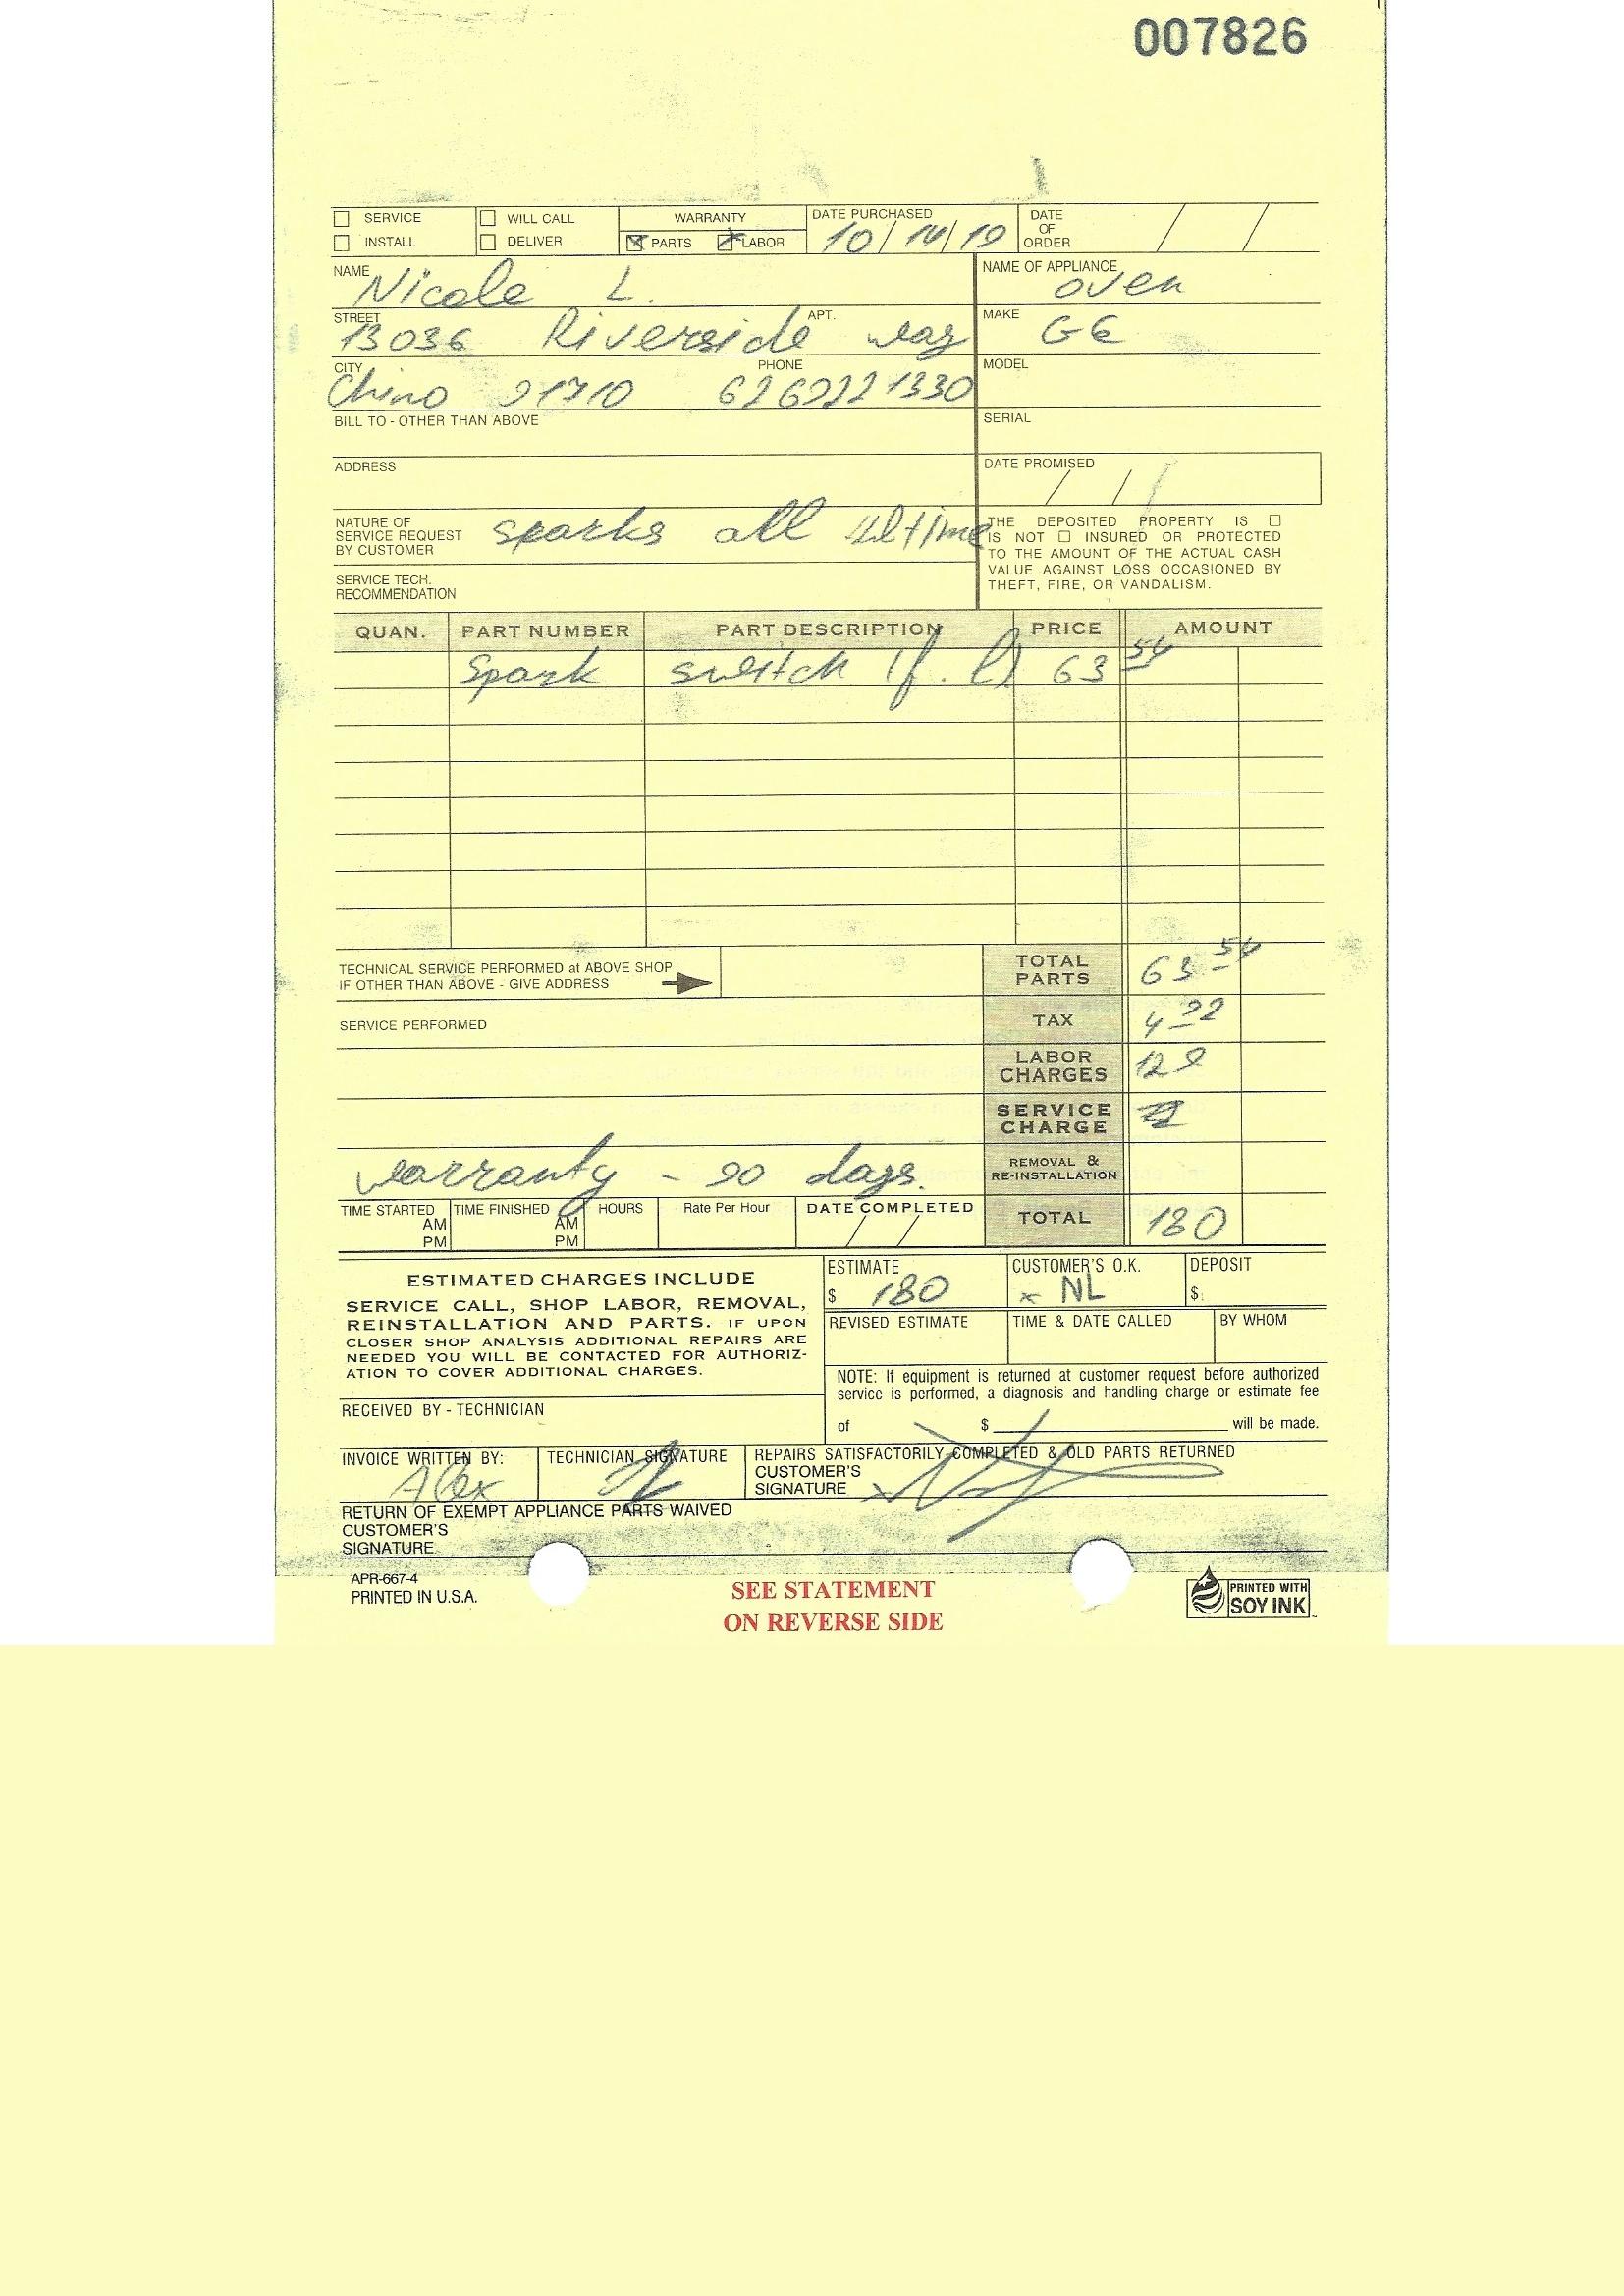 007826
SERVICE WILL CALL WARRANTY DATE PURCHASED DATE OF ORDER
INSTALL DELIVER PARTS LABOR 10/14/19
NAME Nicole L. NAME OF APPLIANCE oven
STREET 13036 Riverside way APT. MAKE GE
CITY Chino 91710 PHONE 6269221330 MODEL
BILL TO - OTHER THAN ABOVE SERIAL
ADDRESS DATE PROMISED
NATURE OF SERVICE REQUEST BY CUSTOMER sparks all time
THE DEPOSITED PROPERTY IS
IS NOT INSURED OR PROTECTED
TO THE AMOUNT OF THE ACTUAL CASH
VALUE AGAINST LOSS OCCASIONED BY
THEFT, FIRE, OR VANDALISM.
SERVICE TECH.
RECOMMENDATION
QUAN. PART NUMBER PART DESCRIPTION PRICE AMOUNT
Spark switch (f. l) 63 54
TECHNICAL SERVICE PERFORMED at ABOVE SHOP
IF OTHER THAN ABOVE - GIVE ADDRESS
TOTAL PARTS 63 - 54
SERVICE PERFORMED TAX 4 - 92
LABOR CHARGES
SERVICE CHARGE
warranty - 90 days. REMOVAL & RE-INSTALLATION
TIME STARTED AM PM TIME FINISHED AM PM HOURS Rate Per Hour DATE COMPLETED TOTAL 180
ESTIMATED CHARGES INCLUDE
SERVICE CALL, SHOP LABOR, REMOVAL,
REINSTALLATION AND PARTS. IF UPON
CLOSER SHOP ANALYSIS ADDITIONAL REPAIRS ARE
NEEDED YOU WILL BE CONTACTED FOR AUTHORIZ-
ATION TO COVER ADDITIONAL CHARGES.
ESTIMATE $ 180 CUSTOMER'S O.K. x NL DEPOSIT $
REVISED ESTIMATE TIME & DATE CALLED BY WHOM
NOTE: If equipment is returned at customer request before authorized
service is performed, a diagnosis and handling charge or estimate fee
of $ will be made.
RECEIVED BY - TECHNICIAN
INVOICE WRITTEN BY: Alex TECHNICIAN SIGNATURE REPAIRS SATISFACTORILY COMPLETED & OLD PARTS RETURNED
CUSTOMER'S
SIGNATURE x
RETURN OF EXEMPT APPLIANCE PARTS WAIVED
CUSTOMER'S
SIGNATURE
APR-667-4
PRINTED IN U.S.A.
SEE STATEMENT
ON REVERSE SIDE
PRINTED WITH
SOY INK